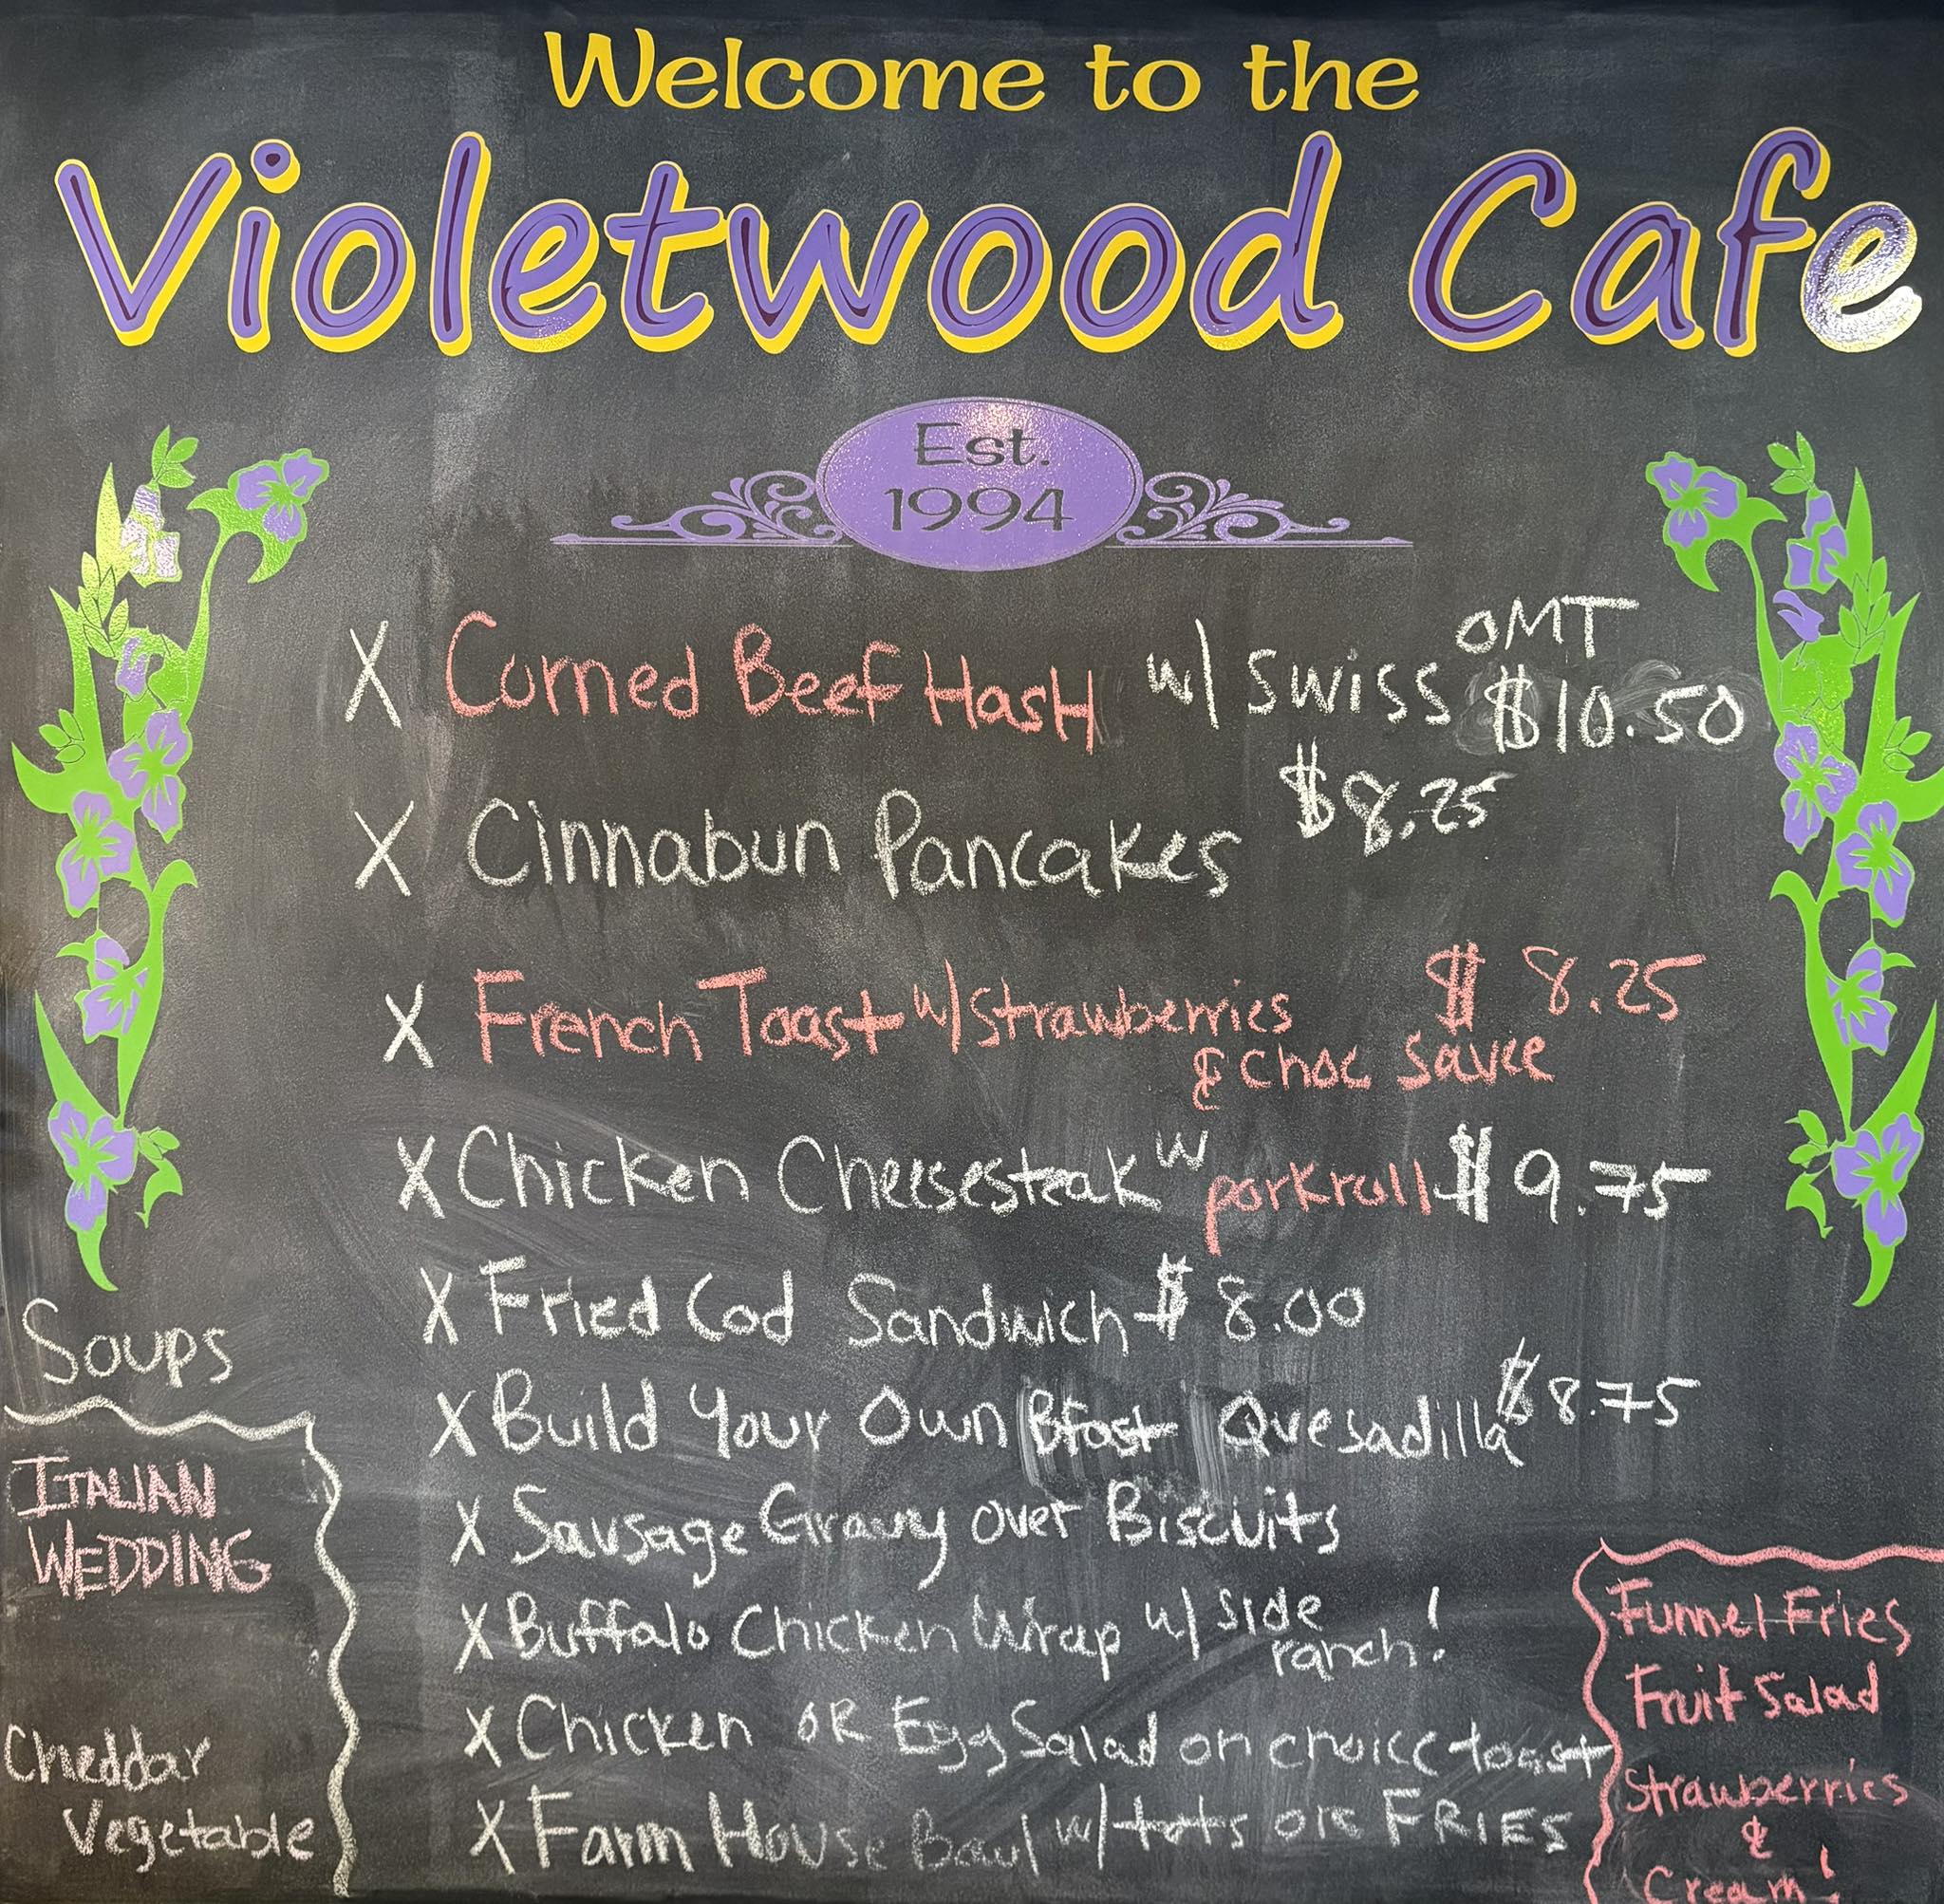 Welcome to the
Violetwood Cafe
Est.
1994
X Corned Beef Hash w/ Swiss OMT $10.50
X Cinnabun Pancakes $8.25
X French Toast w/ strawberries $ 8.25
& Choc Sauce
X Chicken Cheesesteak w porkroll $9.75
X Fried Cod Sandwich $8.00
X Build Your Own Bfast Quesadilla $8.75
X Sausage Gravy over Biscuits
X Buffalo Chicken Wrap w/ side ranch!
X Chicken OR Egg Salad on choice toast
X Farm House Bowl w/ tots OR FRIES
Soups
ITALIAN
WEDDING
Cheddar
Vegetable
Funnel Fries
Fruit Salad
Strawberries
&
Cream!